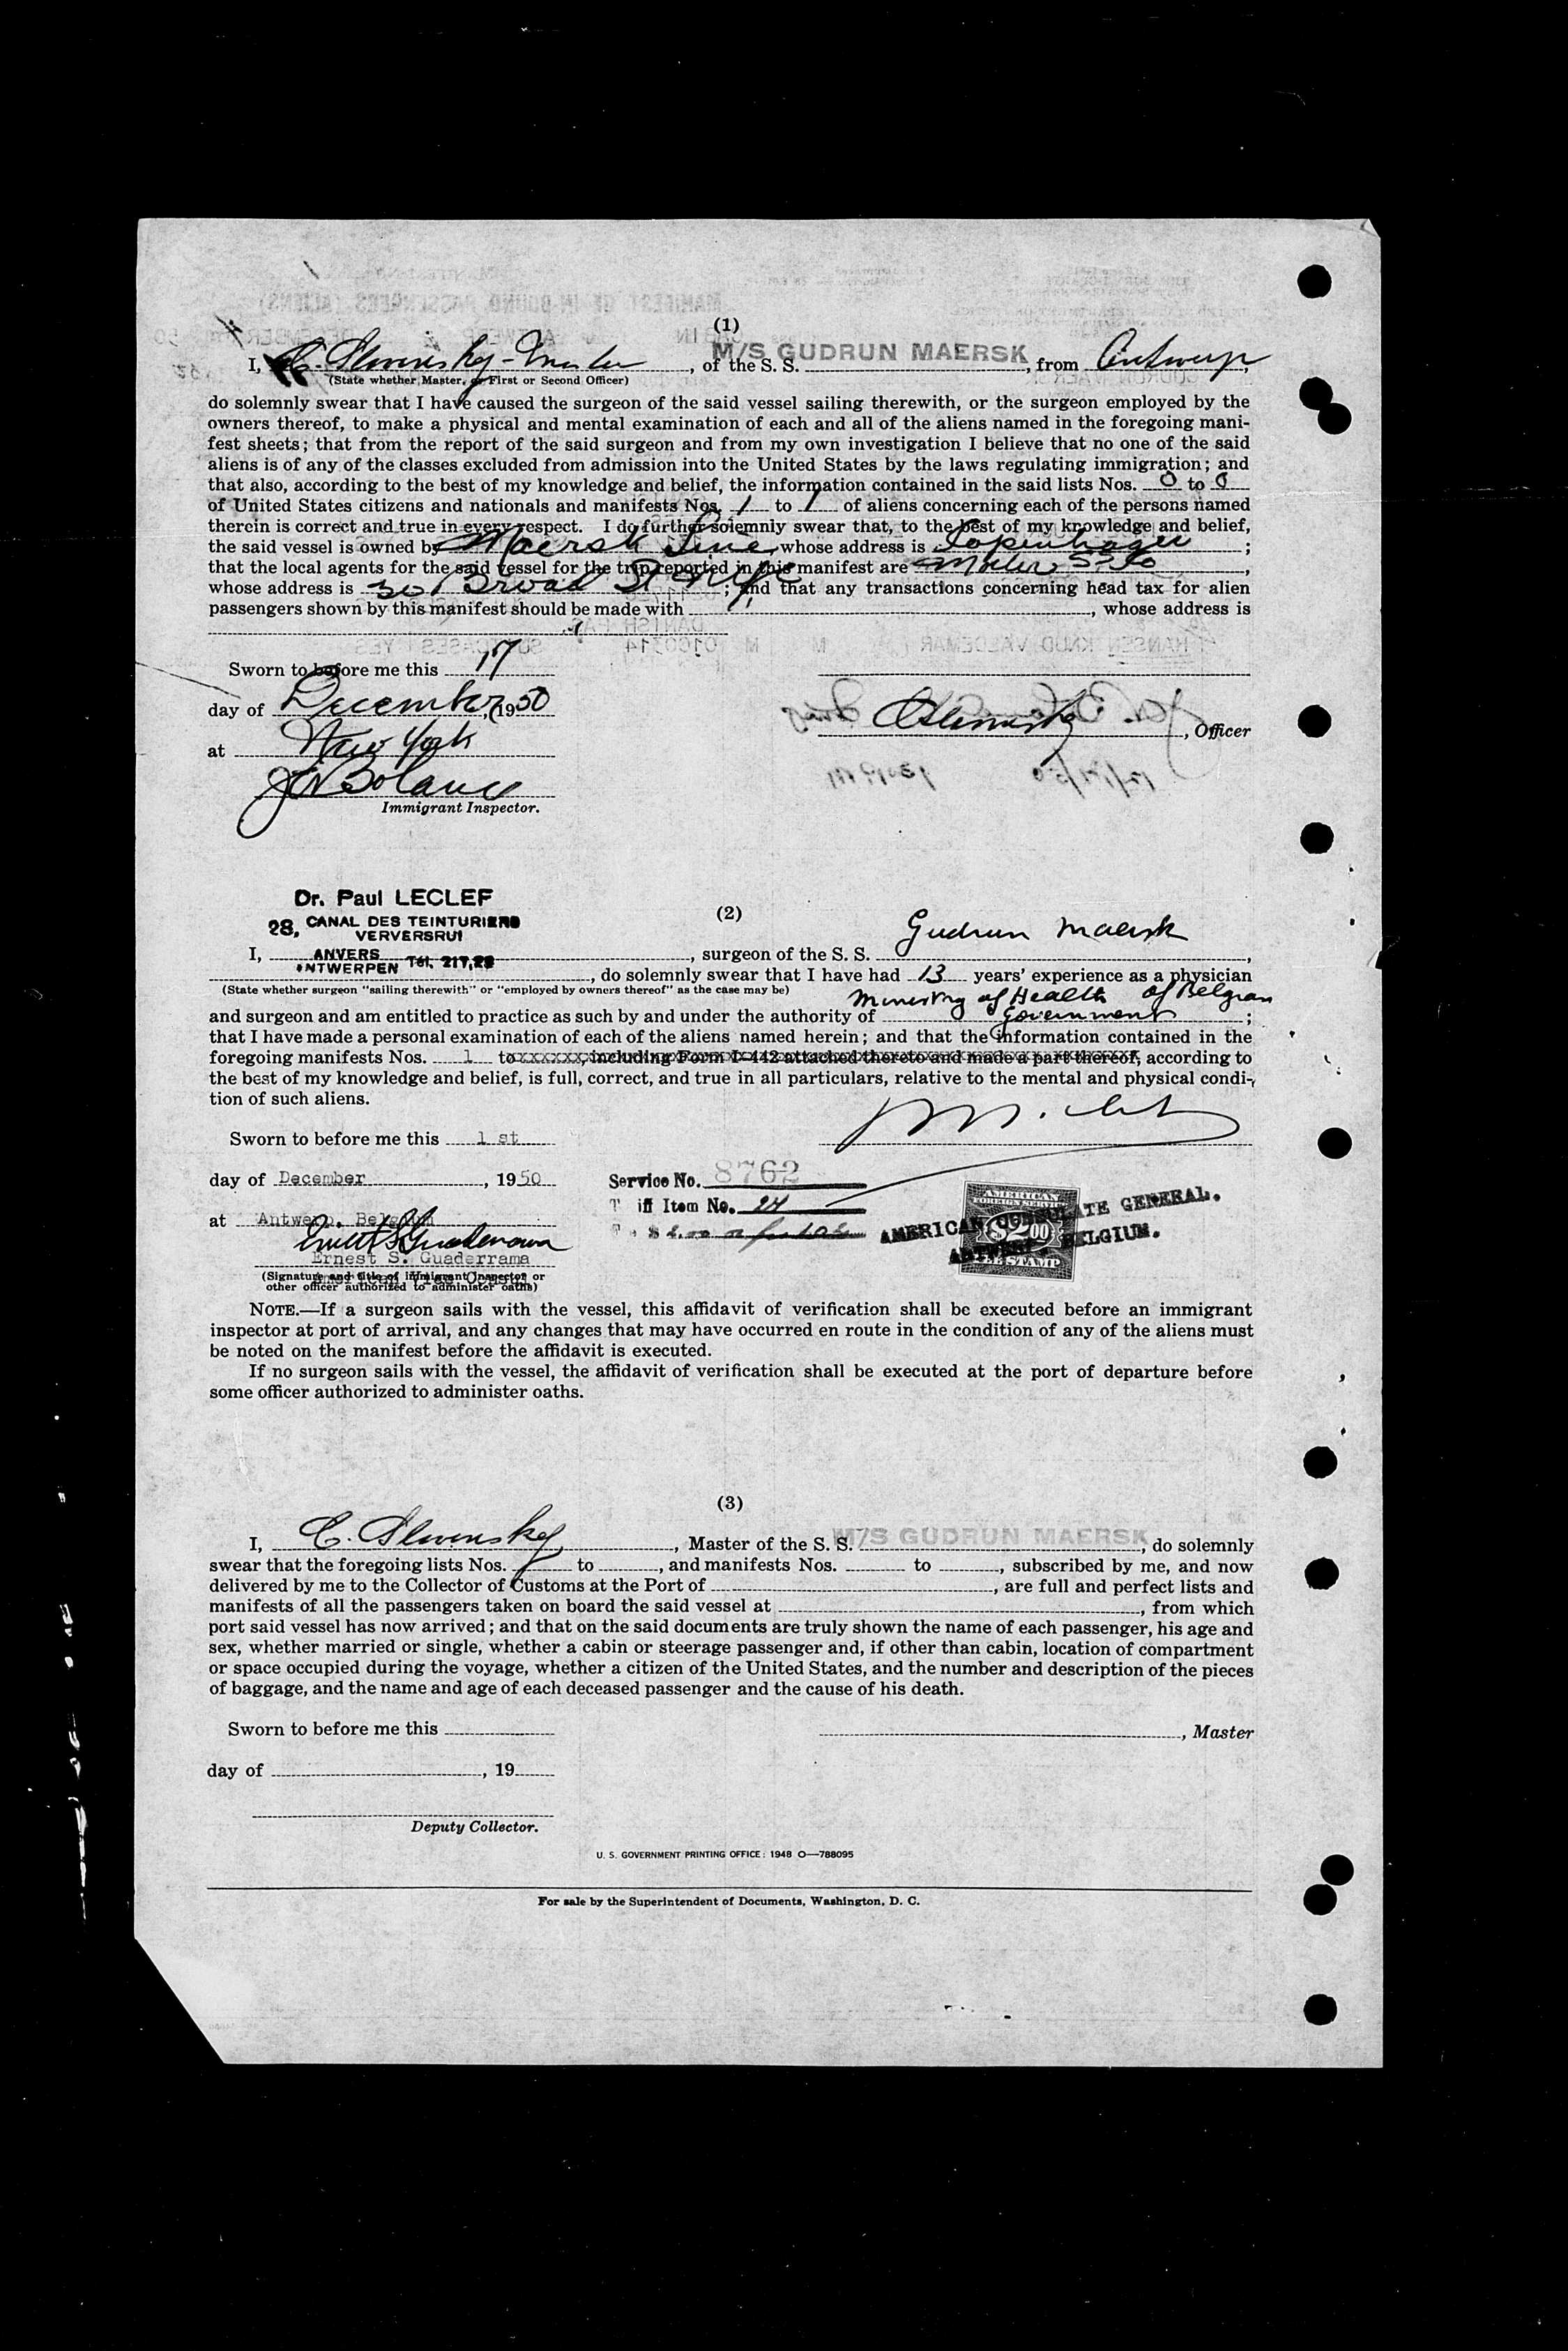 (1)
I, C. Slevinsky - Master, of the S. S. M/S GUDRUN MAERSK, from Antwerp,
(State whether Master, or First or Second Officer)
do solemnly swear that I have caused the surgeon of the said vessel sailing therewith, or the surgeon employed by the
owners thereof, to make a physical and mental examination of each and all of the aliens named in the foregoing mani-
fest sheets; that from the report of the said surgeon and from my own investigation I believe that no one of the said
aliens is of any of the classes excluded from admission into the United States by the laws regulating immigration; and
that also, according to the best of my knowledge and belief, the information contained in the said lists Nos. 0 to 0
of United States citizens and nationals and manifests Nos. 1 to 1 of aliens concerning each of the persons named
therein is correct and true in every respect. I do further solemnly swear that, to the best of my knowledge and belief,
the said vessel is owned by Maersk Line, whose address is Copenhagen;
that the local agents for the said vessel for the trip reported in this manifest are Moller SS Co,
whose address is 30 Broad St NYC; and that any transactions concerning head tax for alien
passengers shown by this manifest should be made with , whose address is
Sworn to before me this 17
day of December, 1950
at New York
, Officer
Immigrant Inspector.
Dr. Paul LECLEF
28, CANAL DES TEINTURIERS
VERVERSRUI
(2)
Gudrun Maersk
I, ANVERS , surgeon of the S. S. ,
ANTWERPEN Tél. 217,28 , do solemnly swear that I have had 13 years' experience as a physician
(State whether surgeon "sailing therewith" or "employed by owners thereof" as the case may be)
Ministry of Health of Belgian
and surgeon and am entitled to practice as such by and under the authority of Government;
that I have made a personal examination of each of the aliens named herein; and that the information contained in the
foregoing manifests Nos. 1 to xxxxxxx, including Form I-442 attached thereto and made a part thereof, according to
the best of my knowledge and belief, is full, correct, and true in all particulars, relative to the mental and physical condi-
tion of such aliens.
Sworn to before me this 1 st
day of December, 1950
Service No. 8762
Tariff Item No. 24
at Antwerp, Belgium
AMERICAN CONSULATE GENERAL.
ANTWERP, BELGIUM.
AMERICAN
FOREIGN SERVICE
$2.00
FEE STAMP
Ernest S. Guaderrama
American Vice Consul
(Signature and title of immigrant inspector or
other officer authorized to administer oaths)
NOTE.—If a surgeon sails with the vessel, this affidavit of verification shall be executed before an immigrant
inspector at port of arrival, and any changes that may have occurred en route in the condition of any of the aliens must
be noted on the manifest before the affidavit is executed.
If no surgeon sails with the vessel, the affidavit of verification shall be executed at the port of departure before
some officer authorized to administer oaths.
(3)
I, C. Slevinsky, Master of the S. S. M/S GUDRUN MAERSK, do solemnly
swear that the foregoing lists Nos. to , and manifests Nos. to , subscribed by me, and now
delivered by me to the Collector of Customs at the Port of , are full and perfect lists and
manifests of all the passengers taken on board the said vessel at , from which
port said vessel has now arrived; and that on the said documents are truly shown the name of each passenger, his age and
sex, whether married or single, whether a cabin or steerage passenger and, if other than cabin, location of compartment
or space occupied during the voyage, whether a citizen of the United States, and the number and description of the pieces
of baggage, and the name and age of each deceased passenger and the cause of his death.
Sworn to before me this
, Master
day of , 19
Deputy Collector.
U. S. GOVERNMENT PRINTING OFFICE: 1948 O—788095
For sale by the Superintendent of Documents, Washington, D. C.